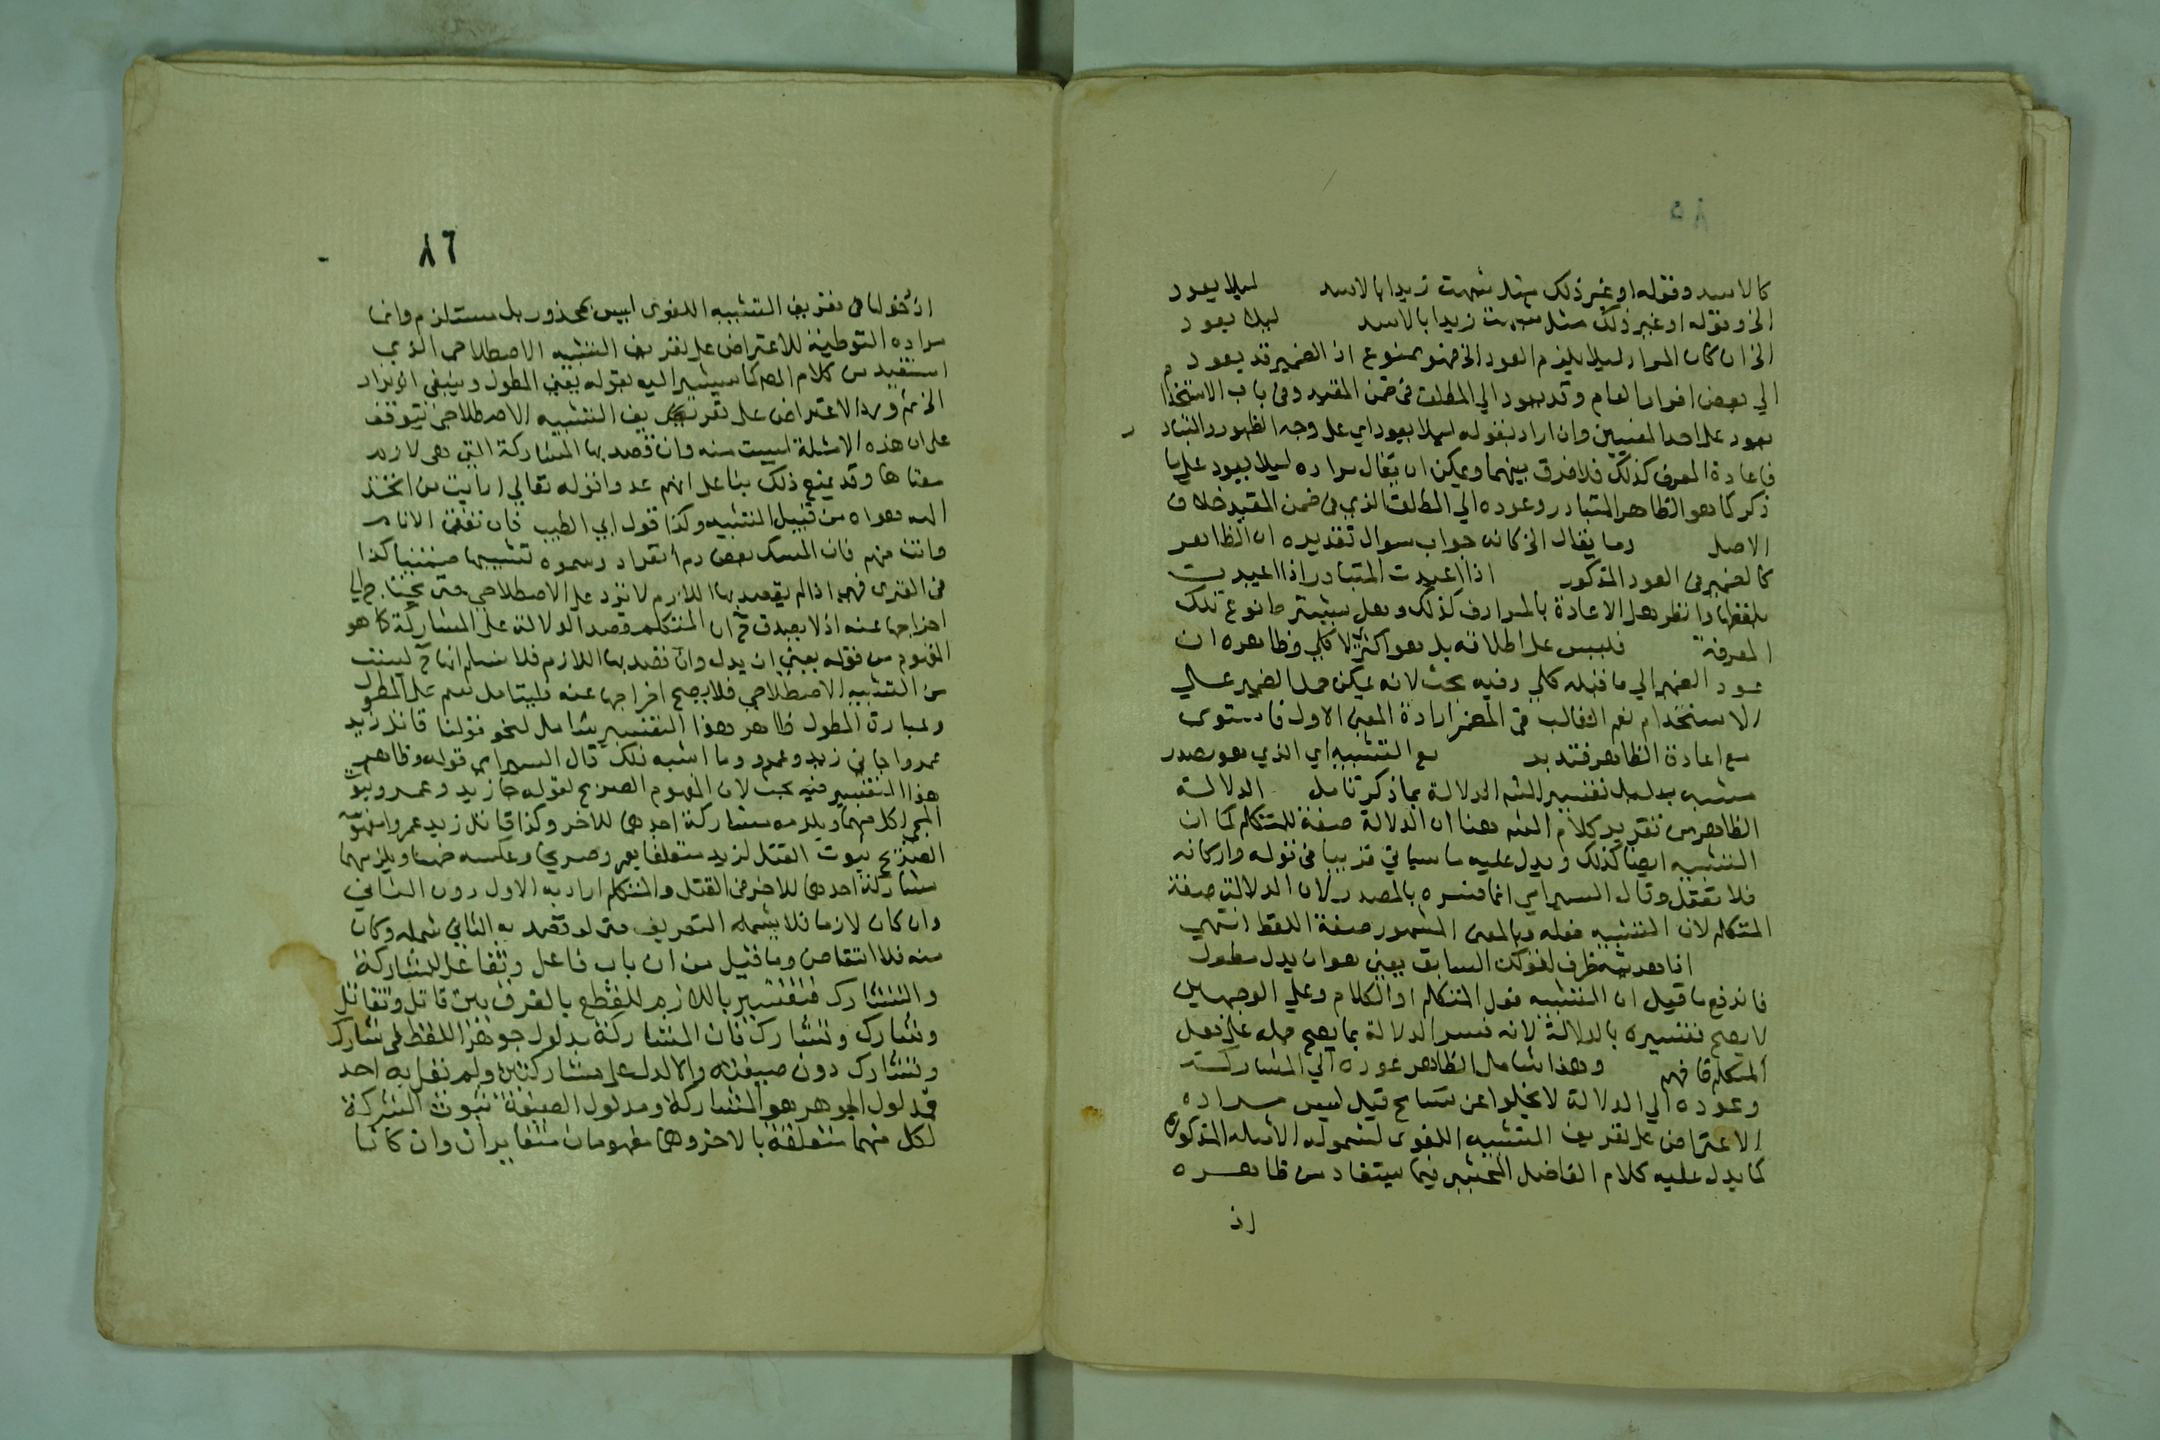 ٨٥
كالاسد وقوله او غير ذلك مثل شبهت زيدا بالاسد ليلا يعود
الخ وقوله او غير ذلك مثل شبهت زيدا بالاسد ليلا يعود
الخ ان كان المراد ليلا يلزم العود الخ فهو ممنوع اذ الضمير قد يعود
الي بعض افراد العام وقد يعود الي المطلق في ضمن المقيد وفي باب الاستخدام
يعود علي احد المعنيين وان اراد بقوله ليلا يعود اي علي وجه الظهور والتبادر
فاعادة المعرف كذلك فلا فرق بينهما ويمكن ان يقال مراده ليلا يعود علي ما
ذكر كما هو الظاهر المتبادر وعوده الي المطلق الذي في ضمن المقيد خلاف
الاصل وما يقال الخ كانه جواب سوال تقديره ان الظاهر
كالضمير في العود المذكور اذا اعيدت المتبادر اذا اعيدت
بلفظها وانظر هل الاعادة بالمرادف كذلك وهل يشترط نوع تلك
المعرفة فليس علي اطلاقه بل هو اكثري لا كلي وظاهره ان
عود الضمير الي ما قبله كلي وفيه بحث لانه يمكن حمل الضمير علي
الاستخدام نعم الغالب في المضمر ارادة المعني الاول فاستوي
مع اعادة الظاهر فتدبر مع التشبيه اي الذي هو مصدر
مشبه بدليل تفسير الشم الدلالة بما ذكر تامل الدلالة
الظاهر من تقرير كلام الشم هنا ان الدلالة صفة للمتكلم كما ان
التشبيه ايضا كذلك ويدل عليه ما سياتي قريبا في قوله واركانه
فلا تغفل وقال السيرامي انما فسره بالمصدر لان الدلالة صفة
المتكلم لان التشبيه فعله وبالمعني المشهور صفة اللفظ انتهي
لقولك السابق يعني هو ان يدل مطول
فاندفع ما قيل ان التشبيه فعل المتكلم او الكلام وعلي الوجهين
لا يصح تفسيره بالدلالة لانه فسر الدلالة بما يصح حمله علي فعل
المتكلم فافهم وهذا شامل الظاهر عوده الي المشاركة
وعوده الي الدلالة لا يخلوا عن تسامح قيل ليس مراده
الاعتراض علي تعريف التشبيه اللغوي لشموله الامثلة المذكورة
كما يدل عليه كلام الفاضل المحشي فيما سيتفاد من ظاهره
اذ
٨٦
اذ دخولها في تعريف التشبيه اللغوي ليس بمحذور بل مستلزم وانما
مراده التوطية للاعتراض علي تعريف التشبيه الاصطلاحي الذي
استفيد من كلام المص كما سيشير اليه بقوله يعني المطول وينبغي ان يزاد
الخ ثم ورد الاعتراض علي تعريف التشبيه الاصطلاحي يتوقف
علي ان هذه الامثلة ليست منه وان قصد بها المشاركة التي هي لازم
معناها وقد يمنع ذلك بنا علي انهم عدوا قوله تعالي ارايت من اتخذ
الهه هواه من قبيل التشبيه وكذا قول ابي الطيب فان تفق الانام
وانت منهم فان المسك بعض دم الغزال وسموه تشبيها ضمنيا كذا
في الفنري فهي اذا لم يقصد بها اللازم لا ترد علي الاصطلاحي حتي يحتاج الي
اخراجها عنه اذ لا يصدق ح ان المتكلم قصد الدلالة علي المشاركة كما هو
المفهوم من قوله يعني ان يدل وان قصد بها اللازم فلا نسلم انها ح ليست
من التشبيه الاصطلاحي فلا يصح اخراجها عنه فليتامل نعم علي المطول
وعبارة المطول ظاهر هذا التفسير شامل لنحو قولنا قاتل زيد
عمروا جاني زيد وعمرو وما اشبه ذلك قال السيرامي قوله وظاهر
هذا التفسير فيه بحث لان المفهوم الصريح لقوله جا زيد وعمرو ثبوت
المجي لكل منهما ويلزمه مشاركة احدهما للاخر وكذا قاتل زيد عمروا مفهومه
الصريح ثبوت القتل لزيد متعلقا بعمرو صريحا وعكسه ضمنا ويلزمهما
مشاركة احدهما للاخر في القتل والمتكلم اراد به الاول دون الثاني
وان كان لازما فلا يشمله التعريف حتي لو قصد به الثاني شمله وكان
منه فلا انتقاض وما قيل من ان باب فاعل وتفاعل للمشاركة
والتشارك فتفسير باللازم للقطع بالفرق بين قاتل وتقاتل
وشارك وتشارك فان المشاركة مدلول جوهر اللفظ في شارك
وتشارك دون صيغته والا لدل علي مشاركتين ولم يقل به احد
فمدلول الجوهر هو المشاركة ومدلول الصيغة ثبوت الشركة
لكل منهما متعلقة بالاخر وهما مفهومان متغايران وان كانا